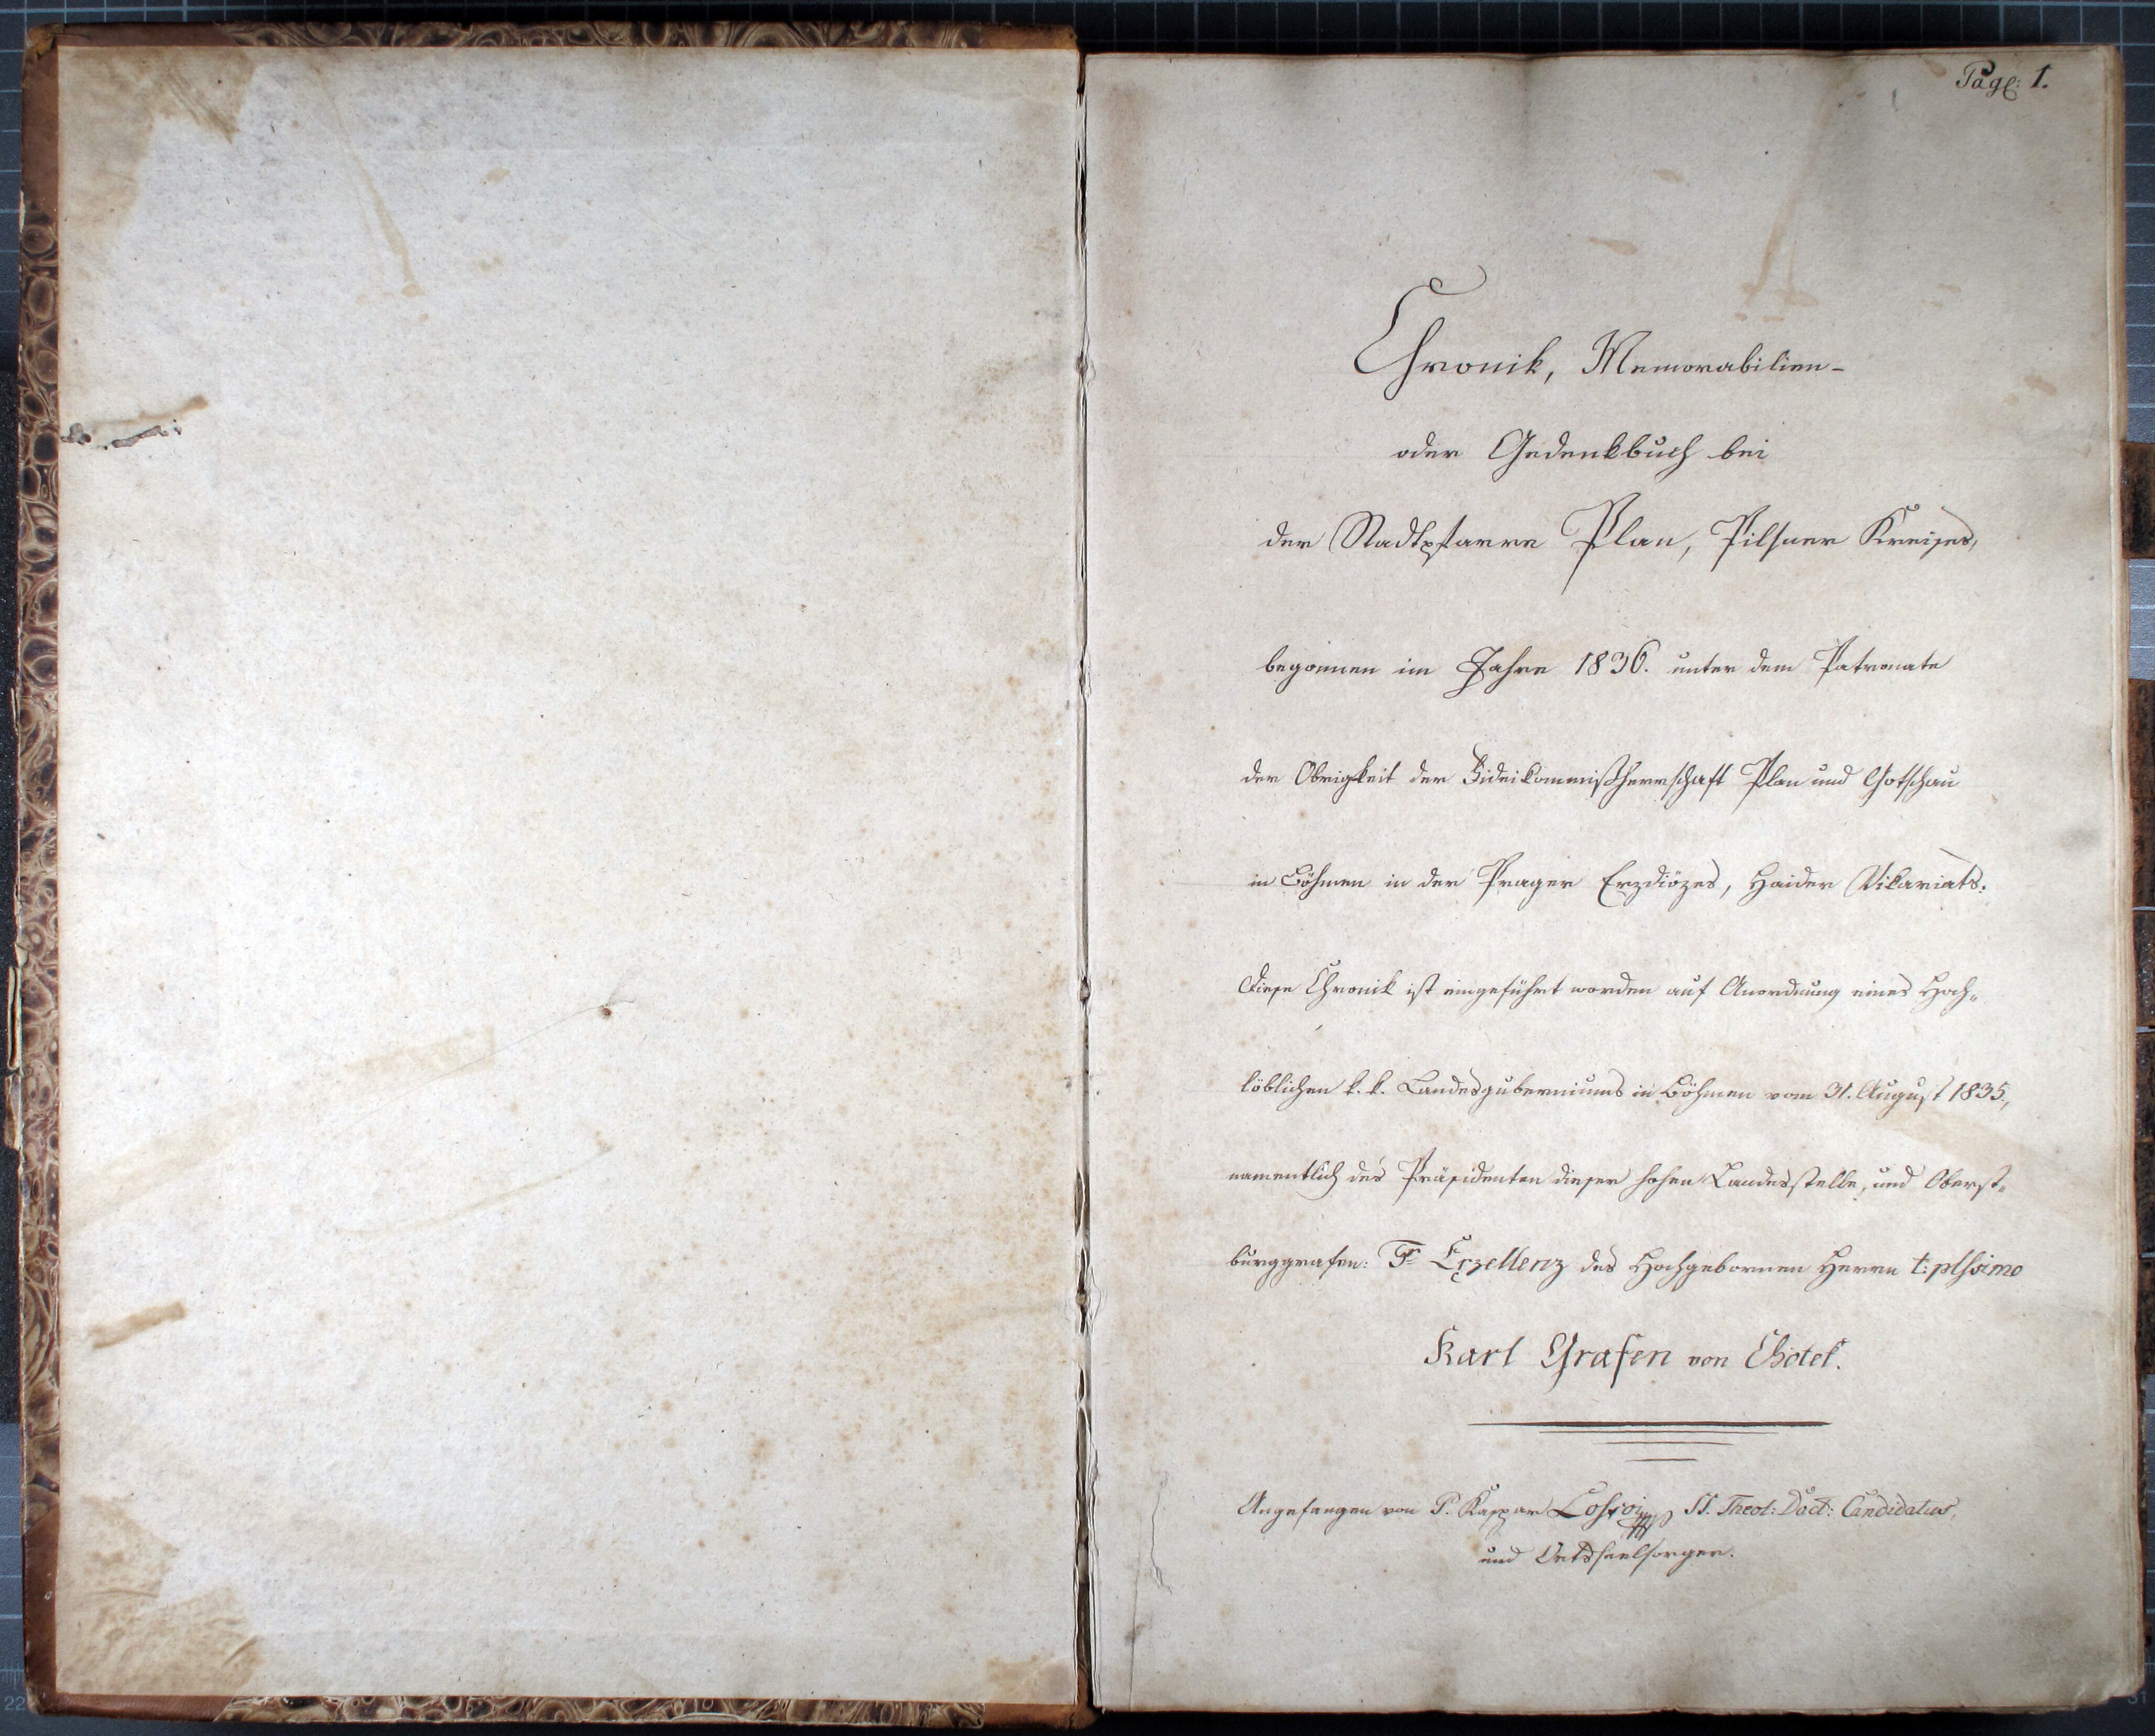 Pag: 1.
Chronik, Memorabilien-
oder Gedenkbuch bei
der Stadtpfarre Plan, Pilsner Kreises,
begonnen im Jahre 1836. unter dem Patronate
der Obrigkeit der Fideikommißherrschaft Plan und Gotschau
in Böhmen in der Prager Erzdiözes, Haider Vikariats.
Diese Chronik ist eingeführt worden auf Anordnung eines Hoch„
löblichen k. k. Landesguberniums in Böhmen vom 31. August 1835.,
namentlich des Präsidenten dieser hohen Landesstelle, und Oberst„
burggrafen: Sr Exzellenz des Hochgebornen Herrn
Karl Grafen von Chotek.
Angefangen von P. Kaspar SS. Theol: Doct: Candidatus,
und Ortsseelsorger.